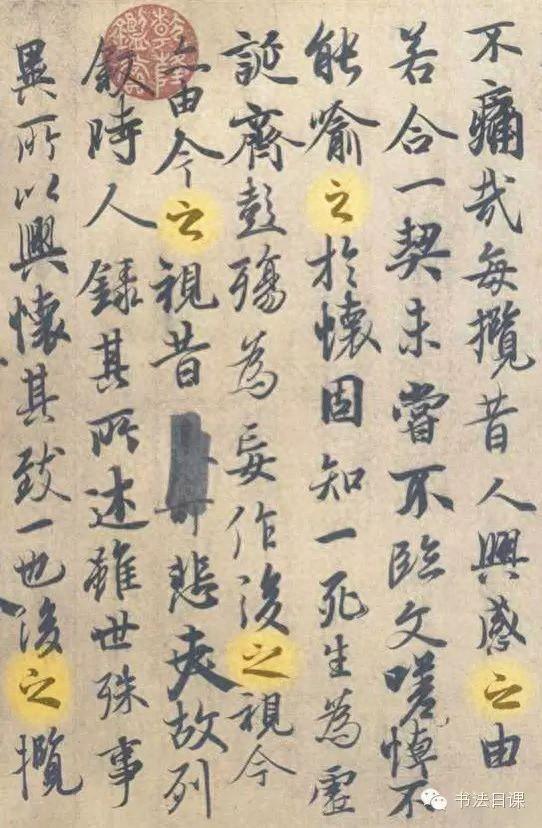 不痛哉每攬昔人興感之由
若合一契未嘗不臨文嗟悼不
能喻之於懷固知一死生為虛
誕齊彭殤為妄作後之視今
亦由今之視昔悲夫故列
敘時人錄其所述雖世殊事
異所以興懷其致一也後之攬
乾隆鑑賞
书法日课